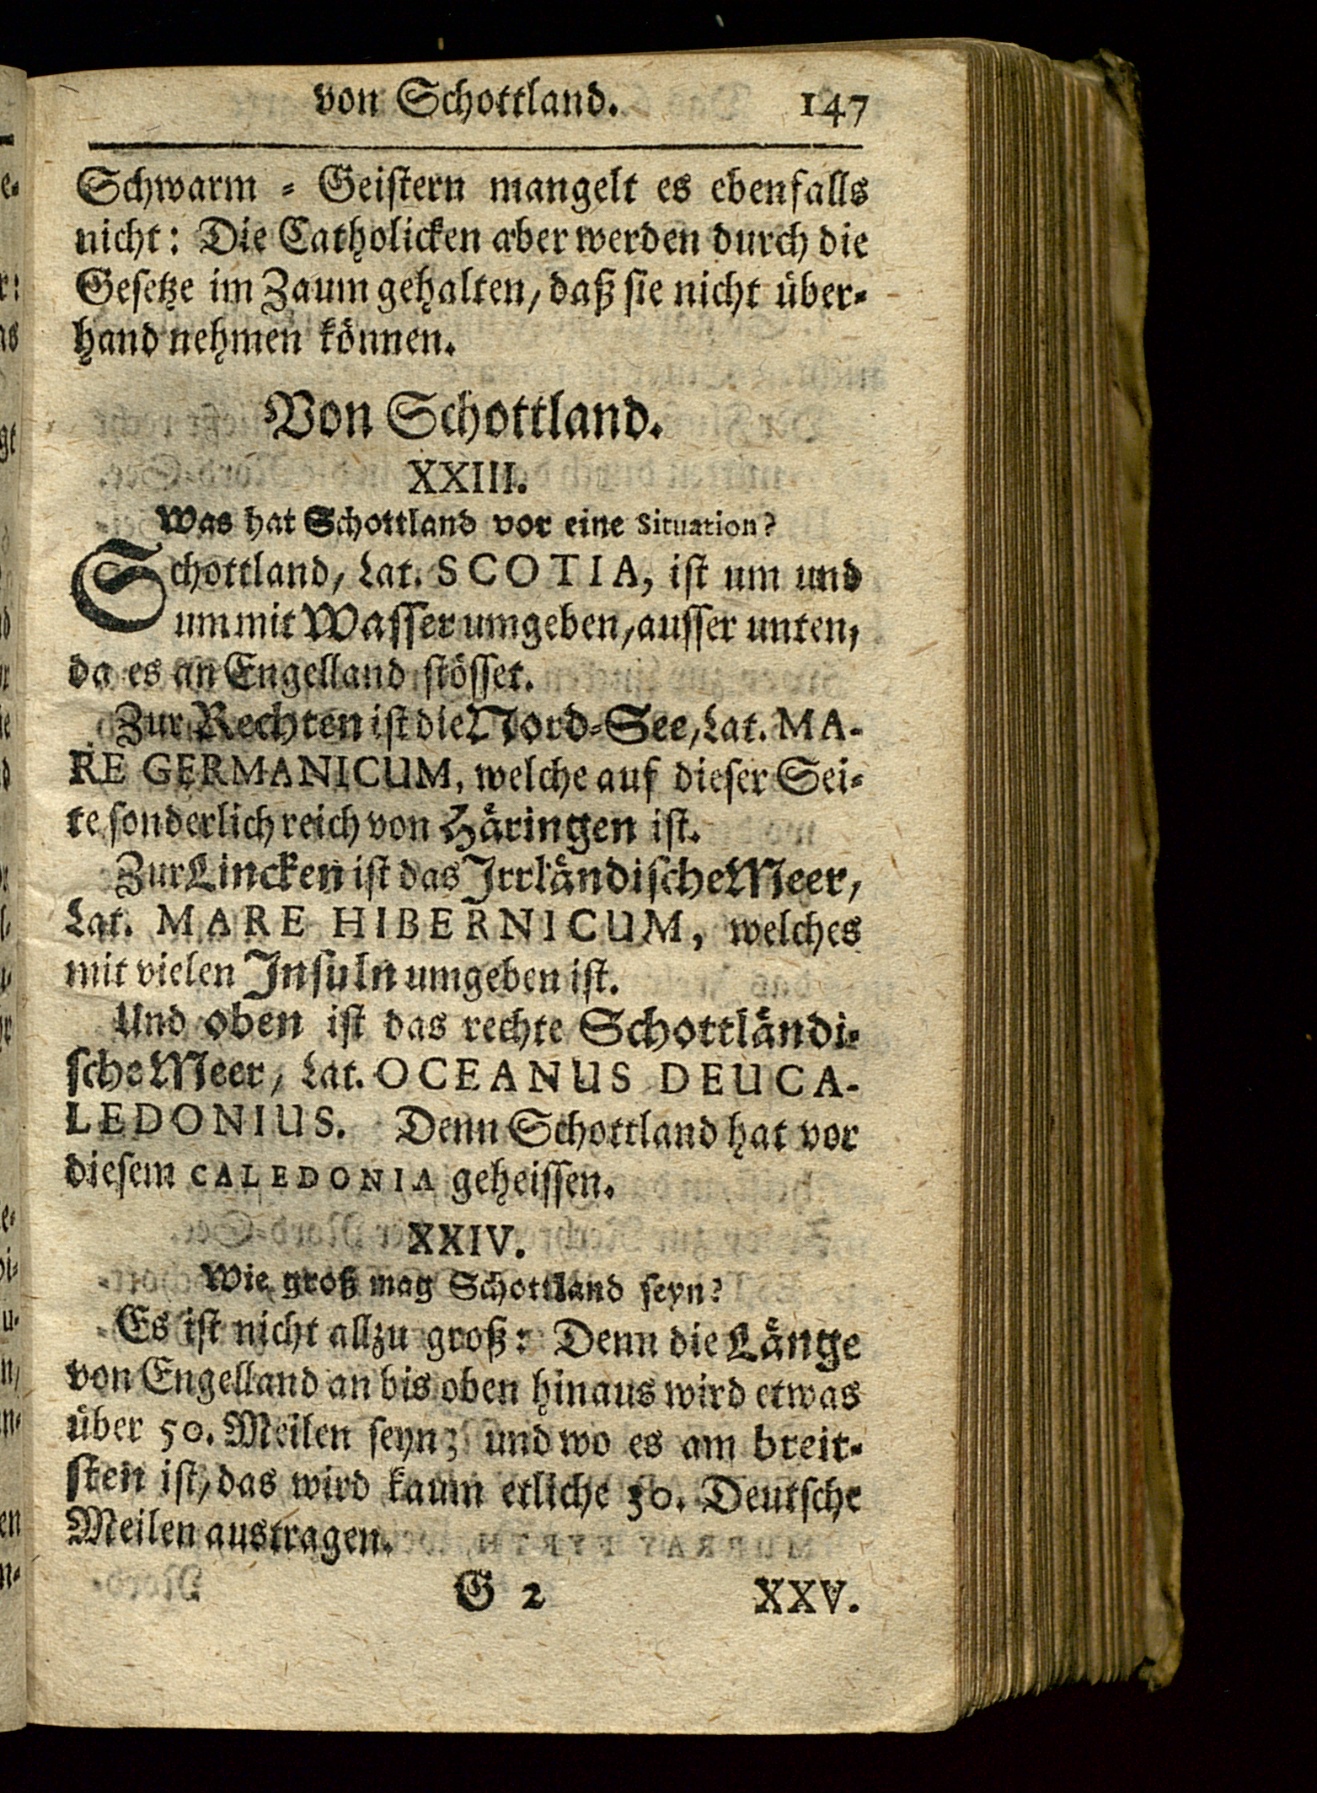 von Schottland. 147
Schwarm-Geistern mangelt es ebenfalls
nicht: Die Catholicken aber werden durch die
Gesetze im Zaum gehalten/ daß sie nicht über-
hand nehmen können.
Von Schottland.
XXIII.
Was hat Schottland vor eine Situation?
Schottland/ Lat. SCOTIA, ist um und
um mit Wasser umgeben/ ausser unten/
da es an Engelland stösset.
Zur Rechten ist die Nord-See/ Lat. MA-
RE GERMANICUM, welche auf dieser Sei-
te sonderlich reich von Häringen ist.
Zur Lincken ist das Irrländische Meer/
Lat. MARE HIBERNICUM, welches
mit vielen Insuln umgeben ist.
Und oben ist das rechte Schottländi-
sche Meer/ Lat. OCEANUS DEUCA-
LEDONIUS. Denn Schottland hat vor
diesem CALEDONIA geheissen.
XXIV.
Wie groß mag Schottland seyn?
Es ist nicht allzu groß: Denn die Länge
von Engelland an bis oben hinaus wird etwas
über 50. Meilen seyn; und wo es am breit-
sten ist/ das wird kaum etliche 30. Deutsche
Meilen austragen.
G 2 XXV.